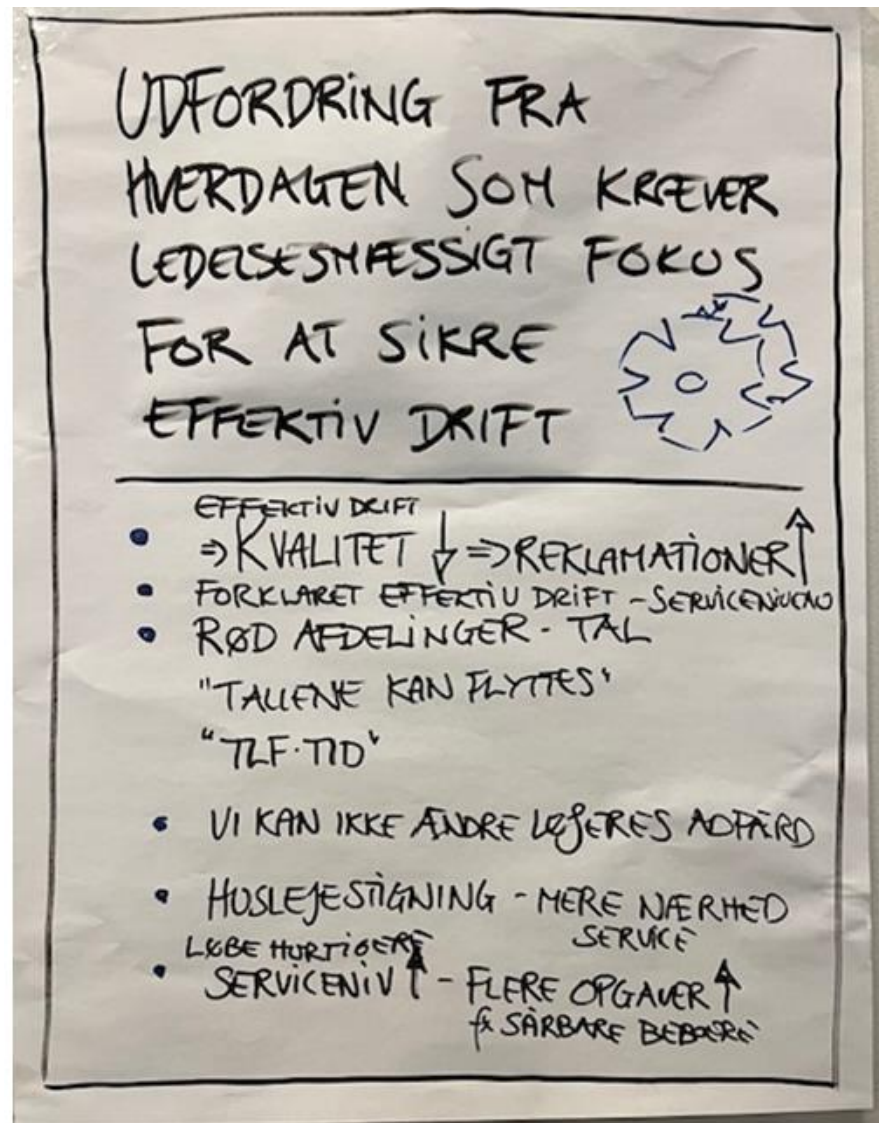 UDFORDRING FRA
HVERDAGEN SOM KRÆVER
LEDELSESMÆSSIGT FOKUS
FOR AT SIKRE
EFFEKTIV DRIFT
EFFEKTIV DRIFT
• ⇒ KVALITET ↓ ⇒ REKLAMATIONER ↑
• FORKLARET EFFEKTIV DRIFT - SERVICENIVEAU
• RØD AFDELINGER - TAL
"TALLENE KAN FLYTTES"
"TLF. TID"
• VI KAN IKKE ÆNDRE LEJERES ADFÆRD
• HUSLEJESTIGNING - MERE NÆRHED
SERVICE
LØBE HURTIGERE
• SERVICENIV ↑ - FLERE OPGAVER ↑
fx SÅRBARE BEBOERE